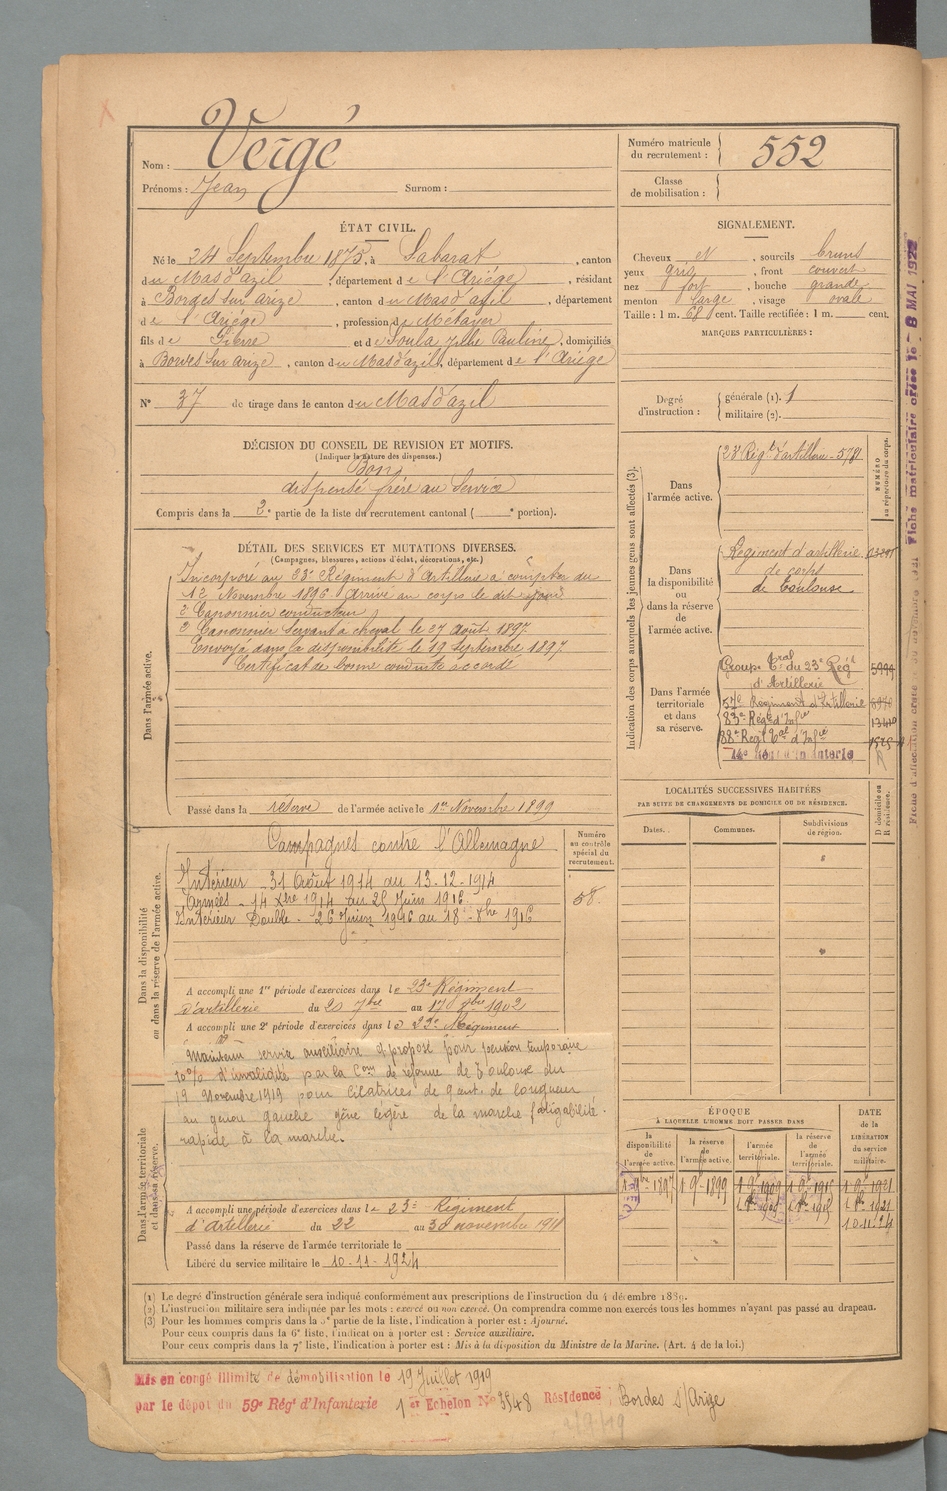 Nom : Vergé
Prénoms : Jean Surnom :
Numéro matricule du recrutement : 552
Classe de mobilisation :
ÉTAT CIVIL.
Né le 24 Septembre 1875, à Sabarat, canton
du Mas d'azil, département de l'Ariége, résidant
à Bordes sur arize, canton du Mas d'azil, département
de l'Ariége, profession de Métayer
fils de Pierre et de Soula Julie Pauline, domiciliés
à Bordes sur arize, canton du Mas d'azil, département de l'Ariége
N° 37 de tirage dans le canton du Mas d'azil
SIGNALEMENT.
Cheveux et , sourcils bruns
yeux gris , front couvert
nez fort , bouche grande
menton large , visage ovale
Taille : 1 m. 68 cent. Taille rectifiée : 1 m. cent.
MARQUES PARTICULIÈRES :
Degré d'instruction : générale (1). 1
militaire (2).
DÉCISION DU CONSEIL DE REVISION ET MOTIFS.
(Indiquer la nature des dispenses.)
Bon
dispensé frère au service
Compris dans la 2e partie de la liste du recrutement cantonal ( e portion).
DÉTAIL DES SERVICES ET MUTATIONS DIVERSES.
(Campagnes, blessures, actions d'éclat, décorations, etc.)
Dans l'armée active.
Incorporé au 23e Régiment d'Artillerie à compter du
12 Novembre 1896 Arrivé au corps le dit jour
2e Canonnier conducteur
2e Canonnier Servant à cheval le 27 Août 1897.
Envoyé dans la disponibilité le 19 Septembre 1897
Certificat de bonne conduite accordé
Passé dans la réserve de l'armée active le 1er Novembre 1899
Indication des corps auxquels les jeunes gens sont affectés (3).
NUMÉRO au répertoire du corps.
Dans l'armée active.
23e Régt d'artillerie - 5781
Dans la disponibilité ou dans la réserve de l'armée active.
Régiment d'artillerie
de corps
de Toulouse
Dans l'armée territoriale et dans sa réserve.
Groupe Tral du 23e Régt
d'Artillerie
57e Régiment d'Artillerie
83e Régt d'Infie
88e Regt Tal d'Infie
LOCALITÉS SUCCESSIVES HABITÉES
PAR SUITE DE CHANGEMENTS DE DOMICILE OU DE RÉSIDENCE.
Dates. Communes. Subdivisions de région. D domicile ou R résidence.
Dans la disponibilité ou dans la réserve de l'armée active.
Numéro au contrôle spécial du recrutement.
58.
Campagnes contre l'Allemagne
Intérieur 31 Août 1914 au 13-12-1914
Armées - 14 Xbre 1914 au 25 Juin 1916.
Intérieur Double - 26 Juin 1916 au 18 - Xbre 1916
A accompli une 1re période d'exercices dans le 23e Régiment
d'artillerie du 20 7bre au 17 8bre 1902
A accompli une 2e période d'exercices dans le 23e Régiment
Maintenu service auxiliaire et proposé pour pension temporaire
10% d'invalidité par la Com de réforme de Toulouse du
19 Novembre 1919 pour cicatrices de 9 cent. de longueur
au genou gauche gêne légère de la marche fatigabilité
rapide à la marche.
Dans l'armée territoriale et dans sa réserve.
A accompli une période d'exercices dans le 23e Régiment
d'Artillerie du 22 au 30 novembre 1911
Passé dans la réserve de l'armée territoriale le
Libéré du service militaire le 10-11-1924
ÉPOQUE
À LAQUELLE L'HOMME DOIT PASSER DANS
DATE de la LIBÉRATION du service militaire.
la disponibilité de l'armée active. la réserve de l'armée active. l'armée territoriale. la réserve de l'armée territoriale.
10-11-24
(1) Le degré d'instruction générale sera indiqué conformément aux prescriptions de l'instruction du 4 décembre 1889.
(2) L'instruction militaire sera indiquée par les mots : exercé ou non exercé. On comprendra comme non exercés tous les hommes n'ayant pas passé au drapeau.
(3) Pour les hommes compris dans la 5e partie de la liste, l'indication à porter est : Ajourné.
Pour ceux compris dans la 6e liste, l'indication à porter est : Service auxiliaire.
Pour ceux compris dans la 7e liste, l'indication à porter est : Mis à la disposition du Ministre de la Marine. (Art. 4 de la loi.)
Mis en congé illimité de démobilisation le 19 Juillet 1919
par le dépôt du 59e Régt d'Infanterie 1er Echelon N° 3548 Résidence : Bordes s/Arize
Fiche matriculaire créée le 8 MAI 1922